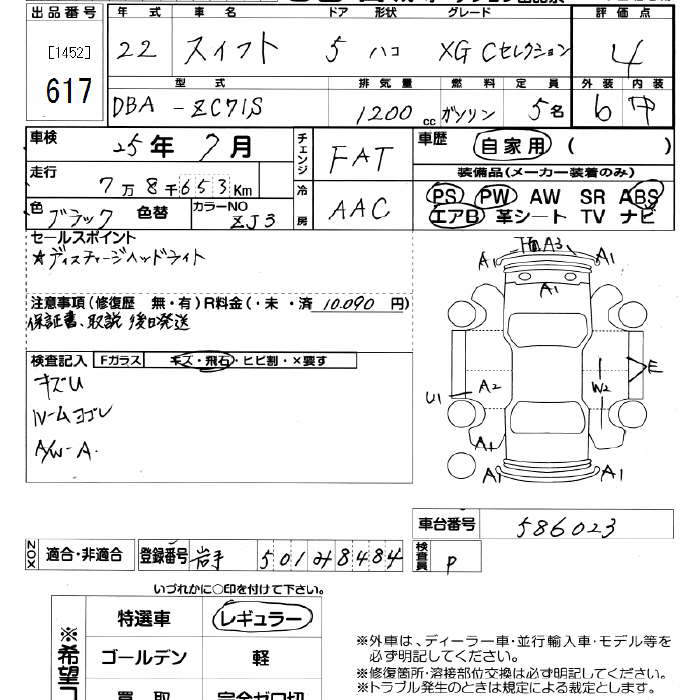 出品番号 年式 車名 ドア 形状 グレード 評価点
[1452] 22 スイフト 5 ハコ XG Cセレクション 4
617
型式 排気量 燃料 定員 外装 内装
DBA -ZC71S 1200cc ガソリン 5名 6 中
車検 25年 7月 チェンジ FAT 車歴 自家用 ( )
走行 7万8千653Km
装備品(メーカー装着のみ)
冷房 AAC PS PW AW SR ABS
色 ブラック 色替 カラーNO ZJ3 エアB 革シート TV ナビ
セールスポイント
★ディスチャージヘッドライト
A1 A3 A1
A1
注意事項(修復歴 無・有)R料金(・未・済 10.090 円)
保証書、取説 後日発送
検査記入 Fガラス キズ・飛石・ヒビ割・×要す
キズU
ルームヨゴレ
A/W-A.
U1 A2 W2 E
A1 A1
A1
車台番号 586023
ZOX 適合・非適合 登録番号 岩手 501み8484 検査員 P
いづれかに○印を付けて下さい。
※希望コ
特選車 レギュラー
ゴールデン 軽
買取 完全ゼロ切
※外車は、ディーラー車・並行輸入車・モデル等を
必ず明記してください。
※修復箇所・溶接部位交換は必ず明記してください。
※トラブル発生のときは規定による裁定とします。